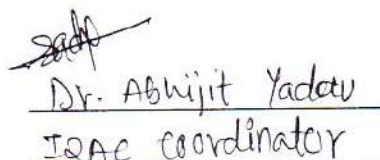 Dr. Abhijit Yadav
IQAC coordinator